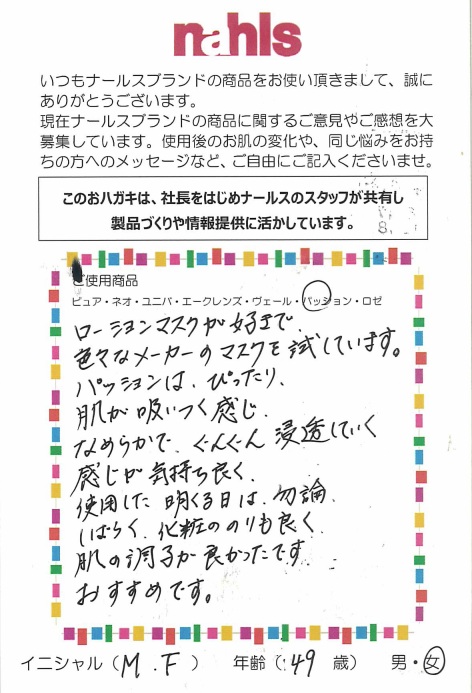 nahls
いつもナールスブランドの商品をお使い頂きまして、誠に
ありがとうございます。
現在ナールスブランドの商品に関するご意見やご感想を大
募集しています。使用後のお肌の変化や、同じ悩みをお持
ちの方へのメッセージなど、ご自由にご記入くださいませ。
このおハガキは、社長をはじめナールスのスタッフが共有し
製品づくりや情報提供に活かしています。
ご使用商品
ピュア・ネオ・ユニバ・エークレンズ・ヴェール・パッション・ロゼ
ローションマスクが好きで、
色々なメーカーのマスクを試しています。
パッションは、ぴったり、
肌が吸いつく感じ、
なめらかで、ぐんぐん浸透していく
感じが気持ち良く、
使用した明くる日は、勿論、
しばらく、化粧ののりも良く、
肌の調子が良かったです。
おすすめです。
イニシャル（M.F） 年齢（49歳） 男・女